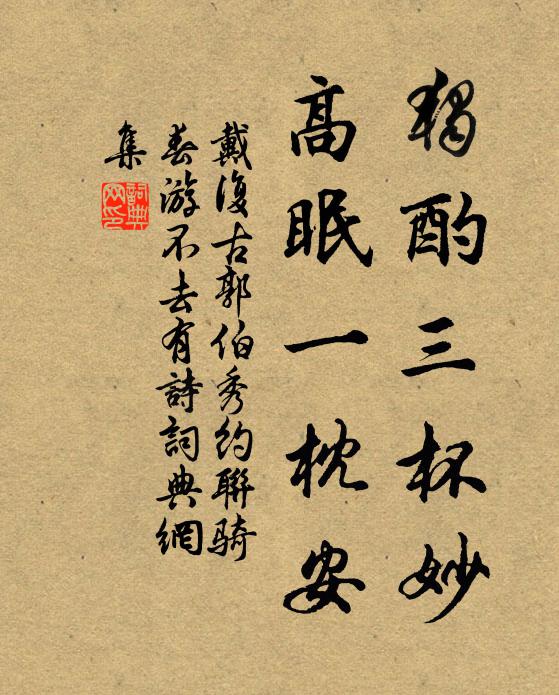 獨酌三杯妙
高眠一枕安
戴復古郭伯秀約聯騎
春游不去有詩詞典網
集
詞典
网印